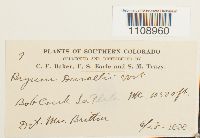 1108960
PLANTS OF SOUTHERN COLORADO
COLLECTED AND DISTRIBUTED BY
C. F. Baker, F. S. Earle and S. M. Tracy.
Bryum
Bob Creek La Plata Mts 10500 ft
Det. Mrs. Britton